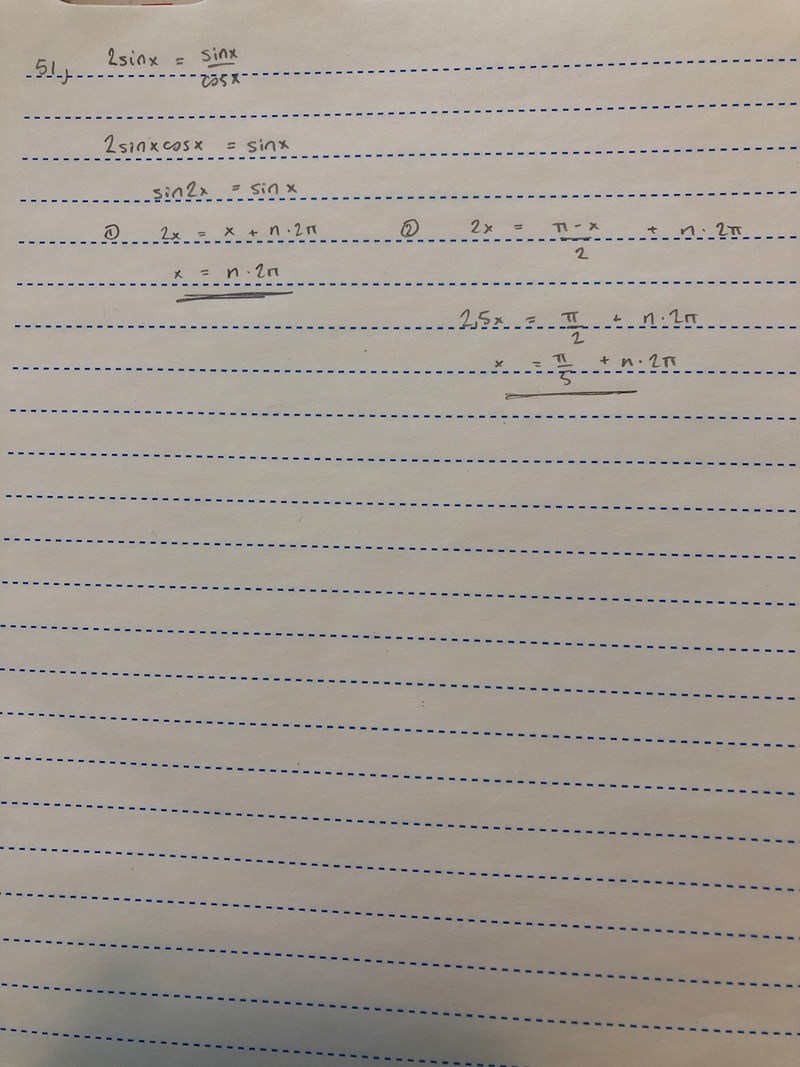 51, 2sinx = sinx/cosx
2sinxcosx = sinx
sin2x = sinx
① 2x = x + n·2π ② 2x = π-x/2 + n·2π
x = n·2π
2,5x = π/2 + n·2π
x = π/5 + n·2π